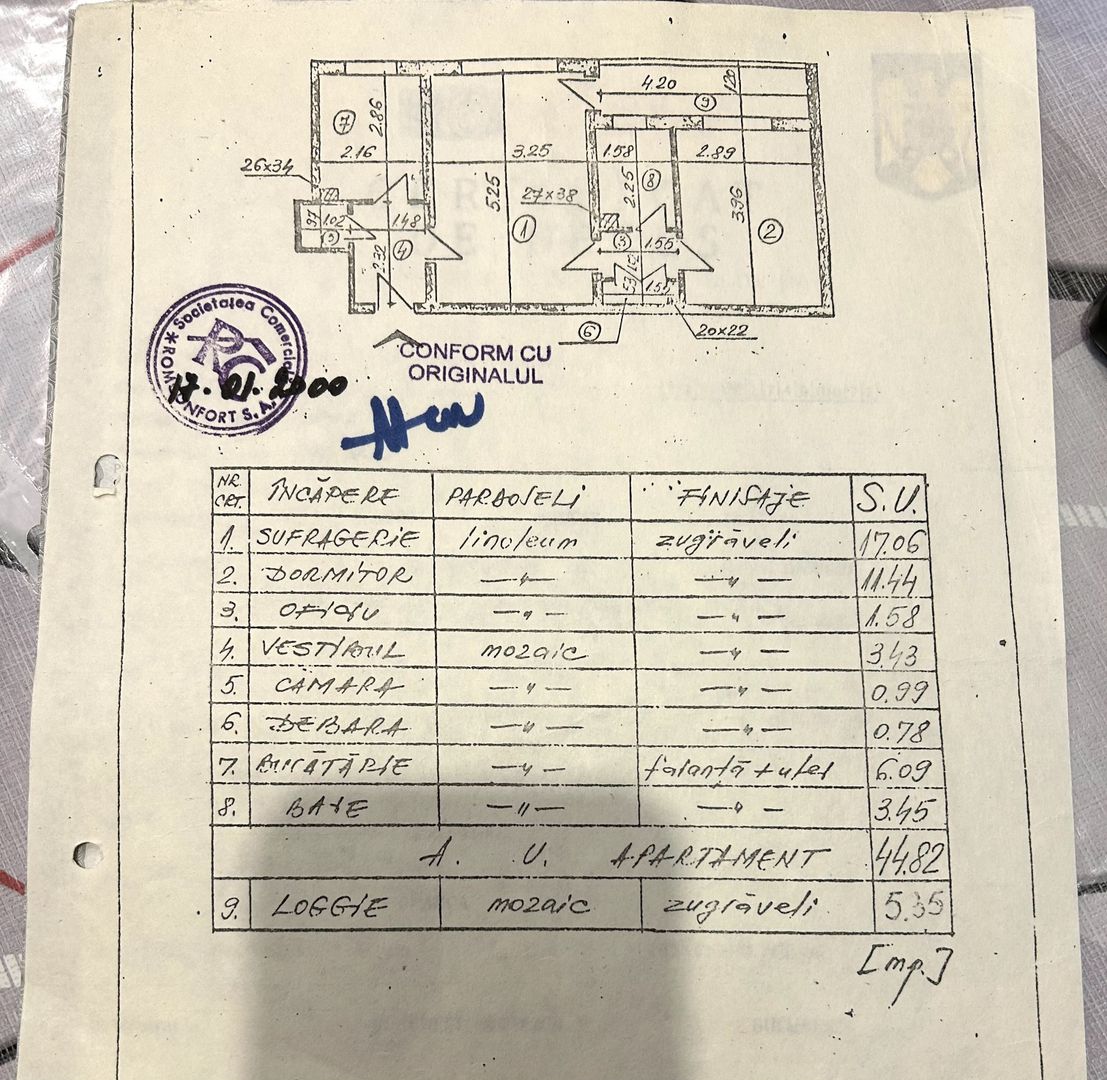 4.20
1.20
9
7
2.86
2.16
3.25
1.58
2.89
26×34
5.25
27×38
2.25
8
3.96
97
1.02
1.48
5
4
2.32
1
3
1.55
2
1.02
53
1.52
6
20×22
Societatea Comercială
ROM CONFORT S.A.
17.01.2000
CONFORM CU
ORIGINALUL
NR. CRT. ÎNCĂPERE PARDOSELI FINISAJE S.U.
1. SUFRAGERIE linoleum zugrăveli 17.06
2. DORMITOR —〃— —〃— 11.44
3. OFICIU —〃— —〃— 1.58
4. VESTIBUL mozaic —〃— 3.43
5. CĂMARA —〃— —〃— 0.99
6. DEBARA —〃— —〃— 0.78
7. BUCĂTĂRIE —〃— faianță + ulei 6.09
8. BAIE —〃— —〃— 3.45
A. U. APARTAMENT 44.82
9. LOGGIE mozaic zugrăveli 5.35
[mp.]